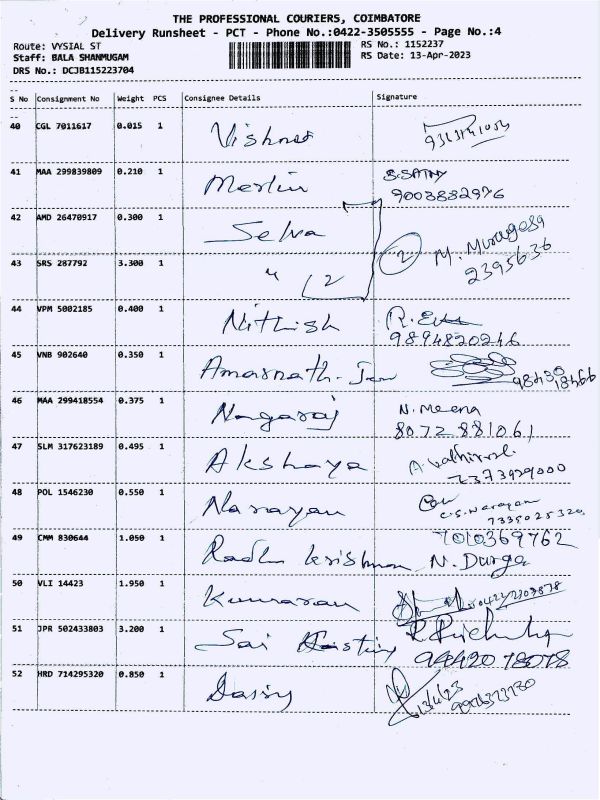 THE PROFESSIONAL COURIERS, COIMBATORE
Delivery Runsheet - PCT - Phone No.:0422-3505555 - Page No.:4
Route: VYSIAL ST RS No.: 1152237
Staff: BALA SHANMUGAM RS Date: 13-Apr-2023
DRS No.: DCJB115223704
S No Consignment No Weight PCS Consignee Details Signature
40 CGL 7011617 0.015 1
41 MAA 299839809 0.210 1 Merlin S. SATHY
9003832976
42 AMD 26470917 0.300 1 Selva
2 M. Murugesa
2395636
43 SRS 287792 3.300 1 " 2
44 VPM 5002185 0.400 1 Nithish R.
9894820246
45 VNB 902640 0.350 1 Amarnath.
98430 18466
46 MAA 299418554 0.375 1 Nagaraj N. Meena
8072 881061
47 SLM 317623189 0.495 1 Akshaya A.
7373929000
48 POL 1546230 0.550 1 Narayan
C.S. Narayan
7335025320
49 CMM 830644 1.050 1 Radha krishnan 7010369762
N. Durga
50 VLI 14423 1.950 1 Kumaran
51 JPR 502433803 3.200 1 Sai R.
94420 78078
52 HRD 714295320 0.850 1
13/4/23